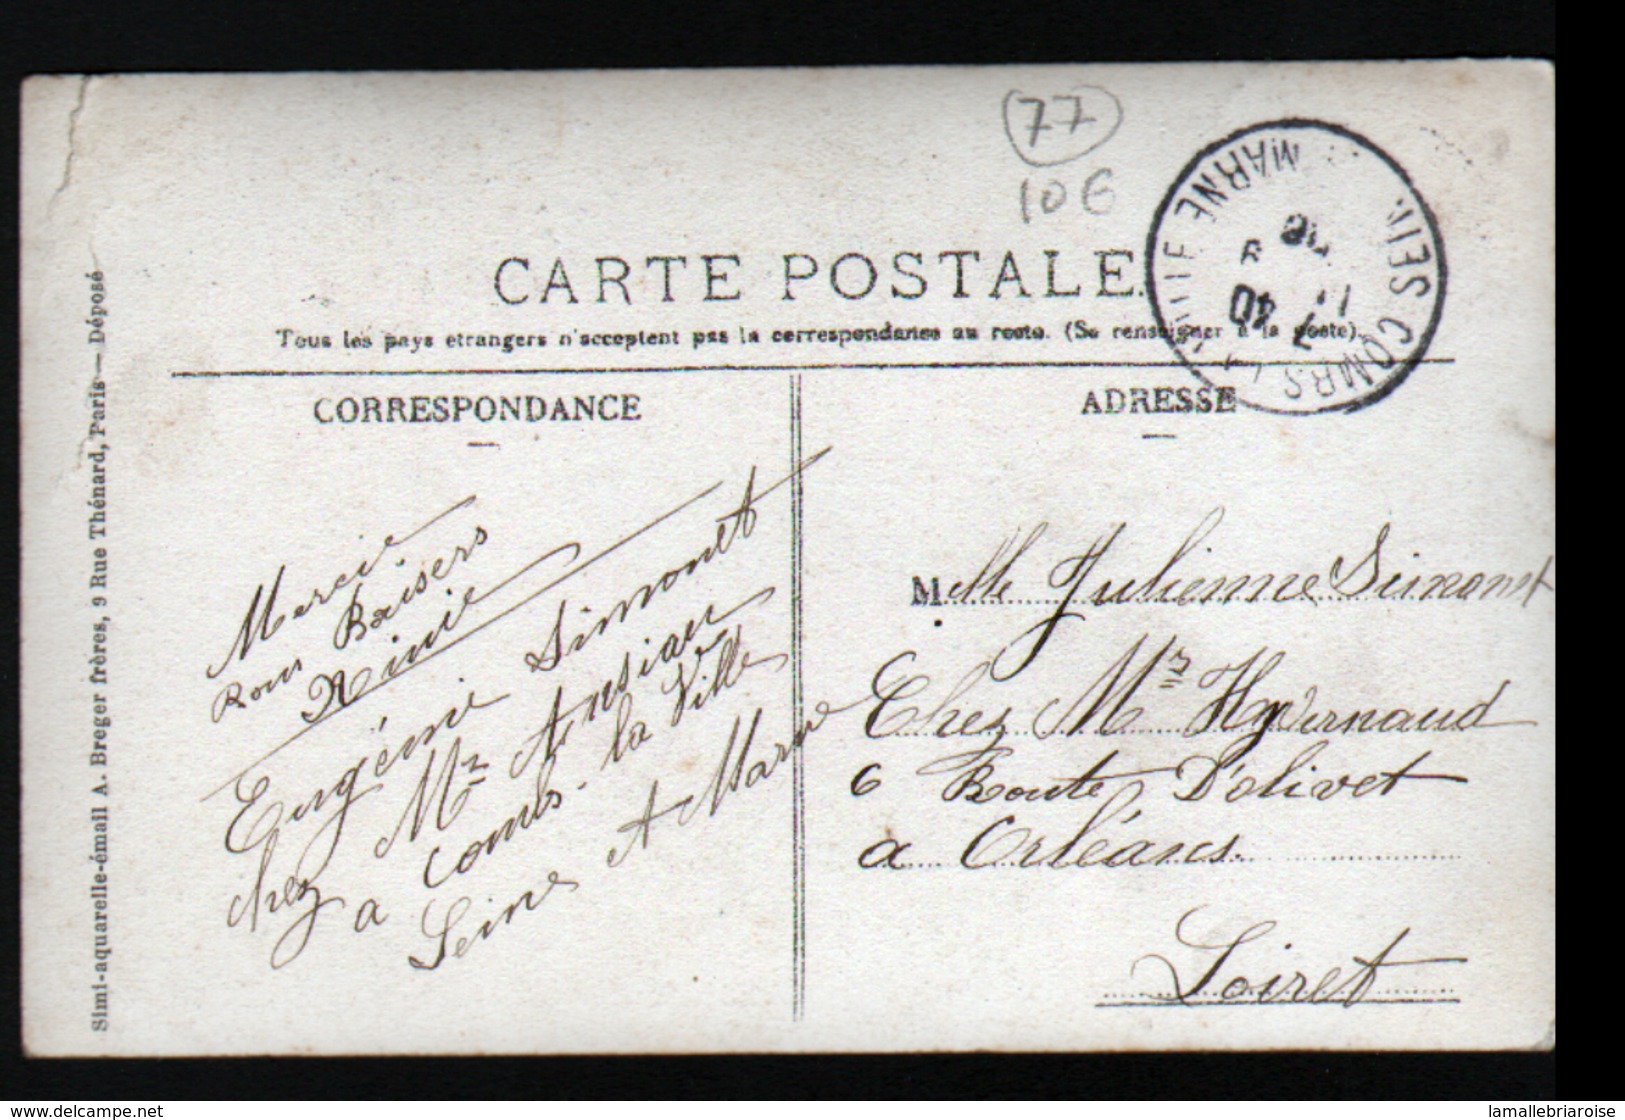 77
10€
CARTE POSTALE
Tous les pays etrangers n'acceptent pas la correspondance au recto. (Se renseigner à la poste).
CORRESPONDANCE
Merci
Bons Baisers
Ninie
Eugénie Simonet
chez Mr
a Combs-la Ville
Seine A Marne
ADRESSE
Melle Julienne Simonet
Chez Mr Hyvernaud
6 Route D'olivet
a Orléans.
Loiret
COMBS LA VILLE
SEINE MARNE
Simi-aquarelle-émail A. Breger frères, 9 Rue Thénard, Paris — Déposé
www.delcampe.net
lamallebriaroise